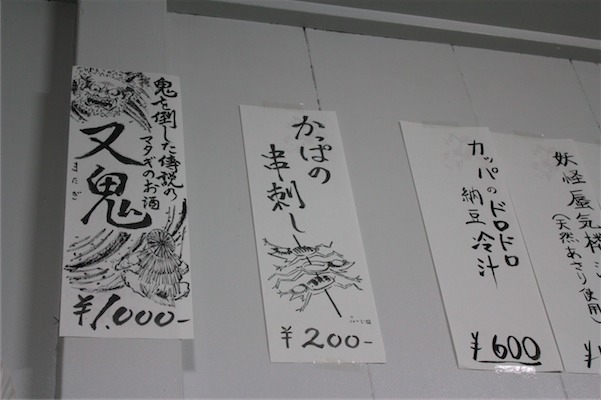 鬼を倒した伝説の
マタギのお酒
又鬼
またぎ
¥1,000-
かっぱの
串刺し
¥200-
カッパのドロドロ
納豆冷汁
¥600
妖怪蜃気楼
(天然あさり使用)
¥